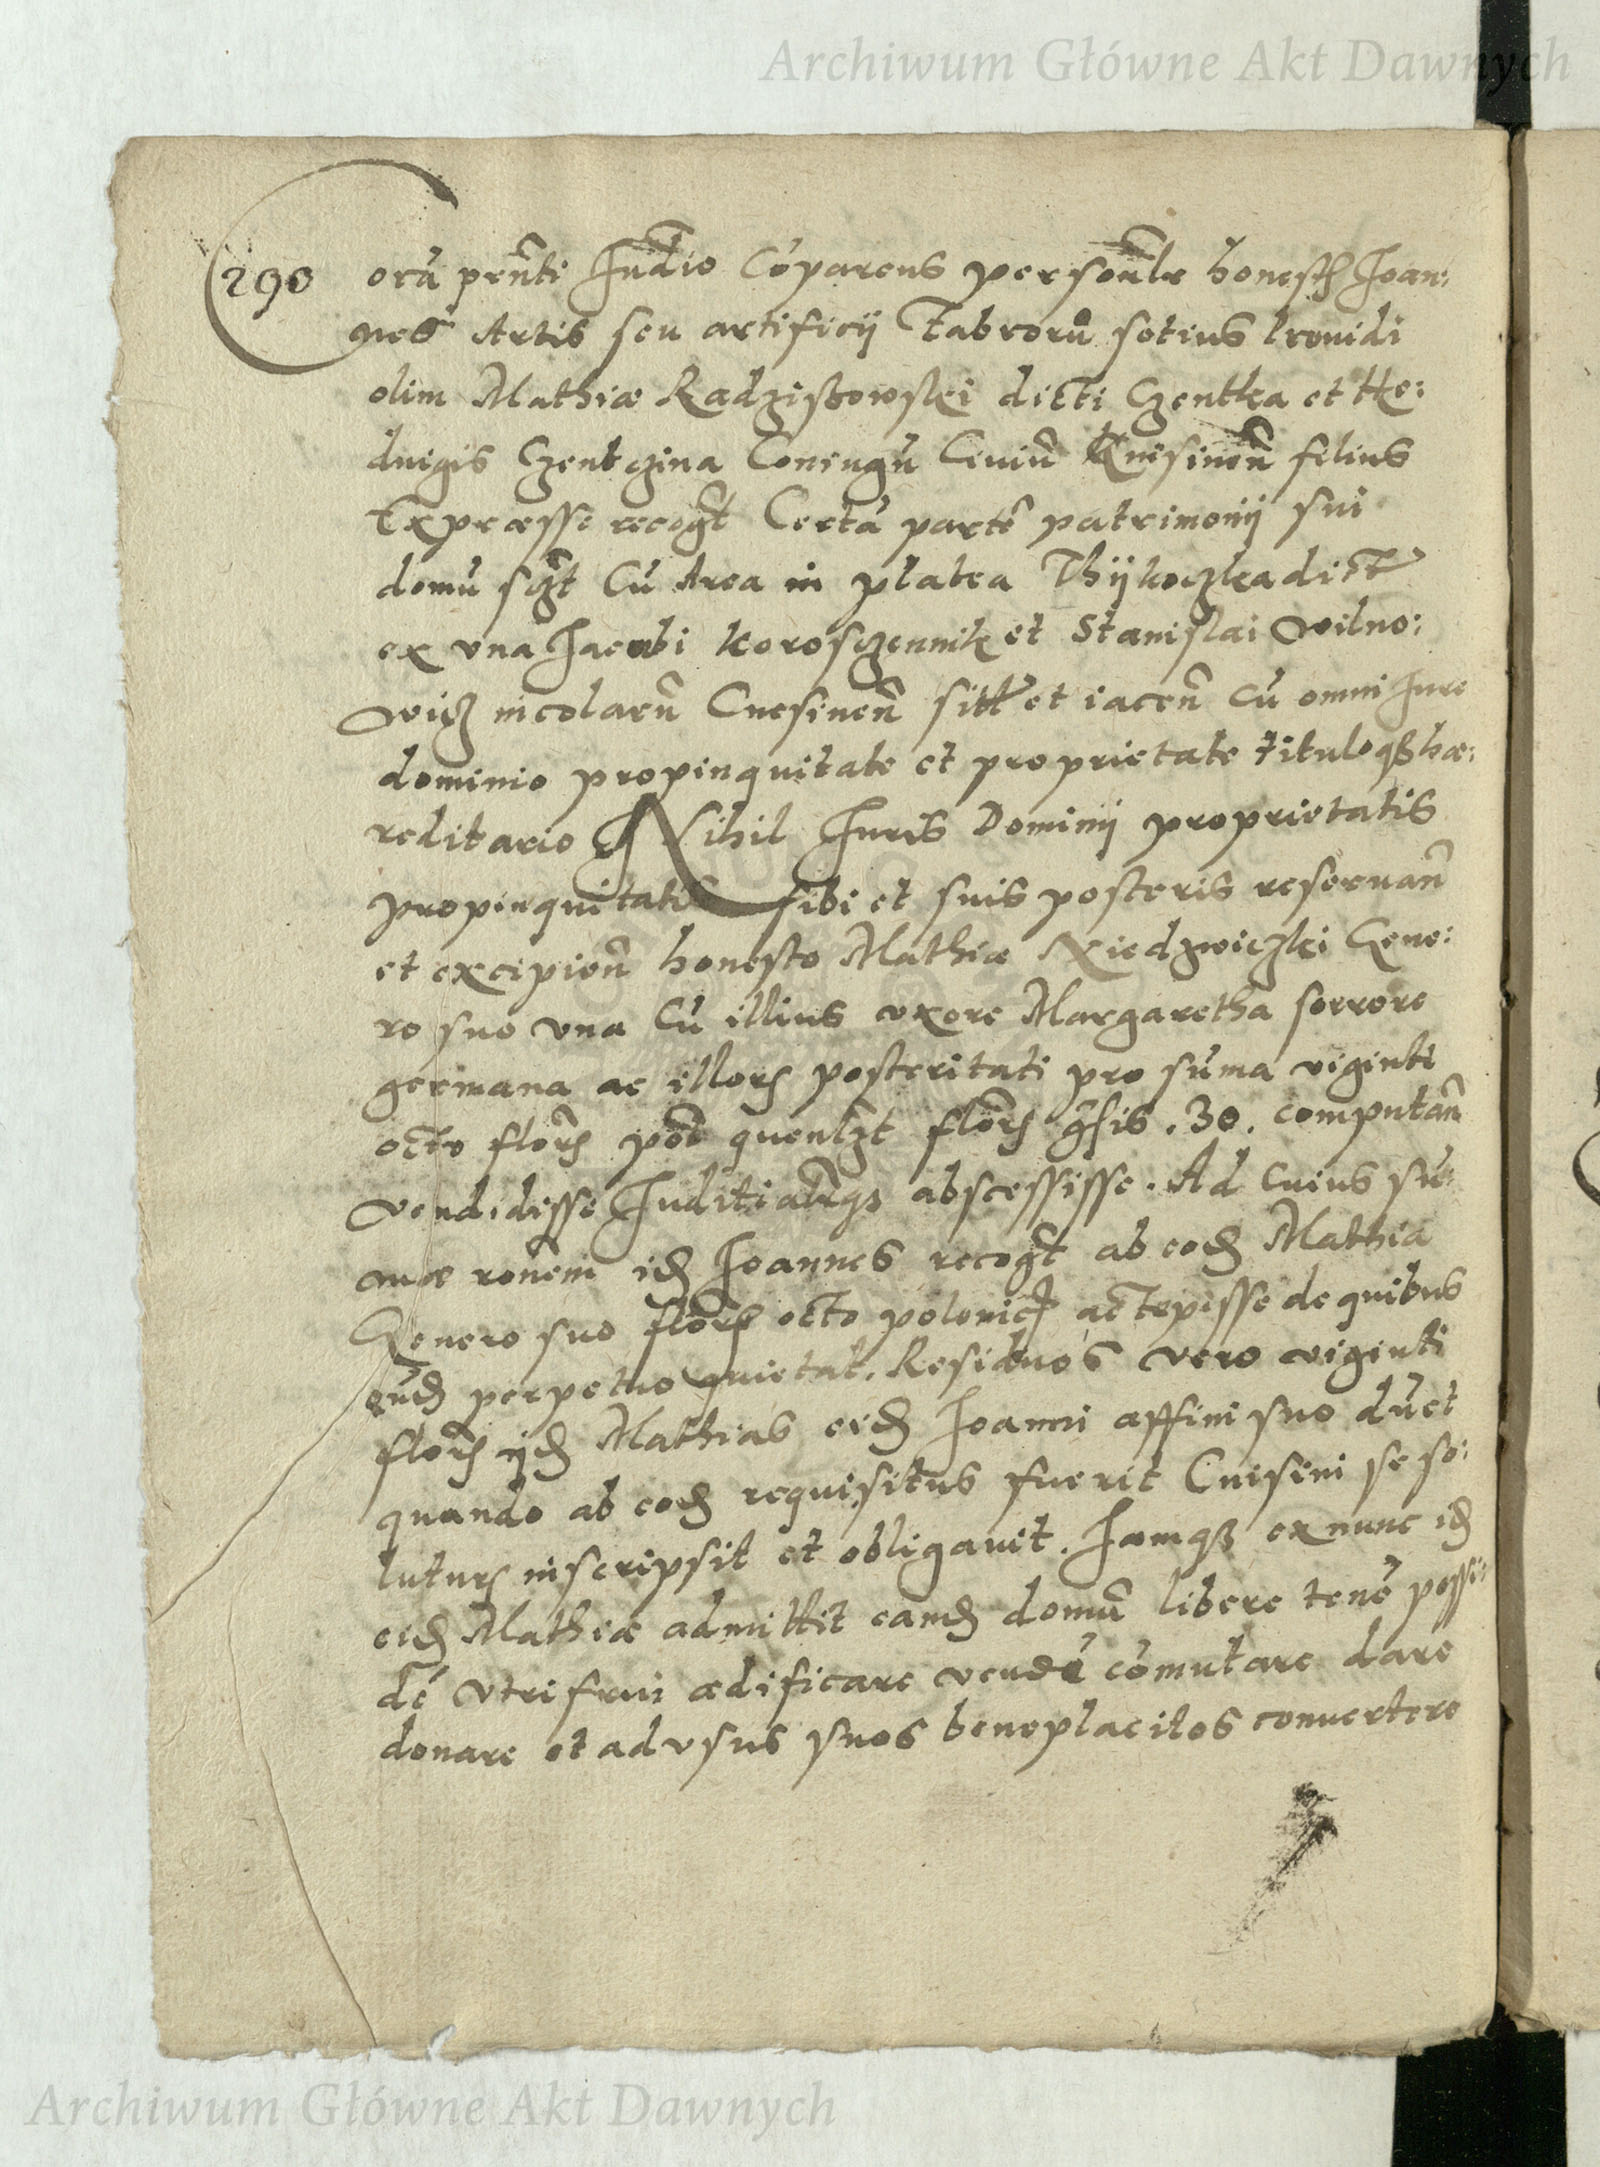 Archiwum Główne Akt Dawnych
290 Corā prñti Judīo Cōparens personālr honestꝰ Joan:
nes Artis seu artificij Fabrorū sotius Providi
olim Mathiæ Radziszowski dicti Czentka et He:
dvigis Czentczina Coniugū Civiū Knisineñ filius
Expræsse recogt Certā partē patrimonij sui
domū sczt Cū Area in platea Thÿkoczka dict
ex una Jacobi Korosczennik et Stanislai Wilno:
wicz incolarū Cnesineñ sitt et iaceñ Cū omni Jure
dominio propinquitate et proprietate tituloqꝫ hæ:
reditario Nihil Juris Dominij proprietatis
propinquitatis sibi et suis posteris reservañ
et excipieñ honesto Mathiæ Niedzwiczki Gene:
ro suo una Cū illius uxore Margaretha sorrore
germana ac illorꝫ posteritati pro sūma viginti
octo florꝫ pōt quemlzt florꝫ gsis . 30 . computañ
vendidisse Juditialrqꝫ abscessisse . Ad Cuius sū:
mæ ronem idꝫ Joannes recogt ab eodꝫ Mathia
Genero suo florꝫ octo polonic acTepisse de quibus
eūdꝫ perpetuo quietat . Residuos vero viginti
florꝫ ijdꝫ Mathias eidꝫ Joanni affini suo dū et
quando ab eodꝫ requisitus fuerit Cnisini se so:
luturꝫ inscripsit et obligavit . Jamqꝫ ex nunc idꝫ
eidꝫ Mathiæ admittit eamdꝫ domū libere tenē possi:
dē Utrifrui ædificare vendē cōmutare dare
donare et ad usus suos beneplacitos convertere
Archiwum Główne Akt Dawnych